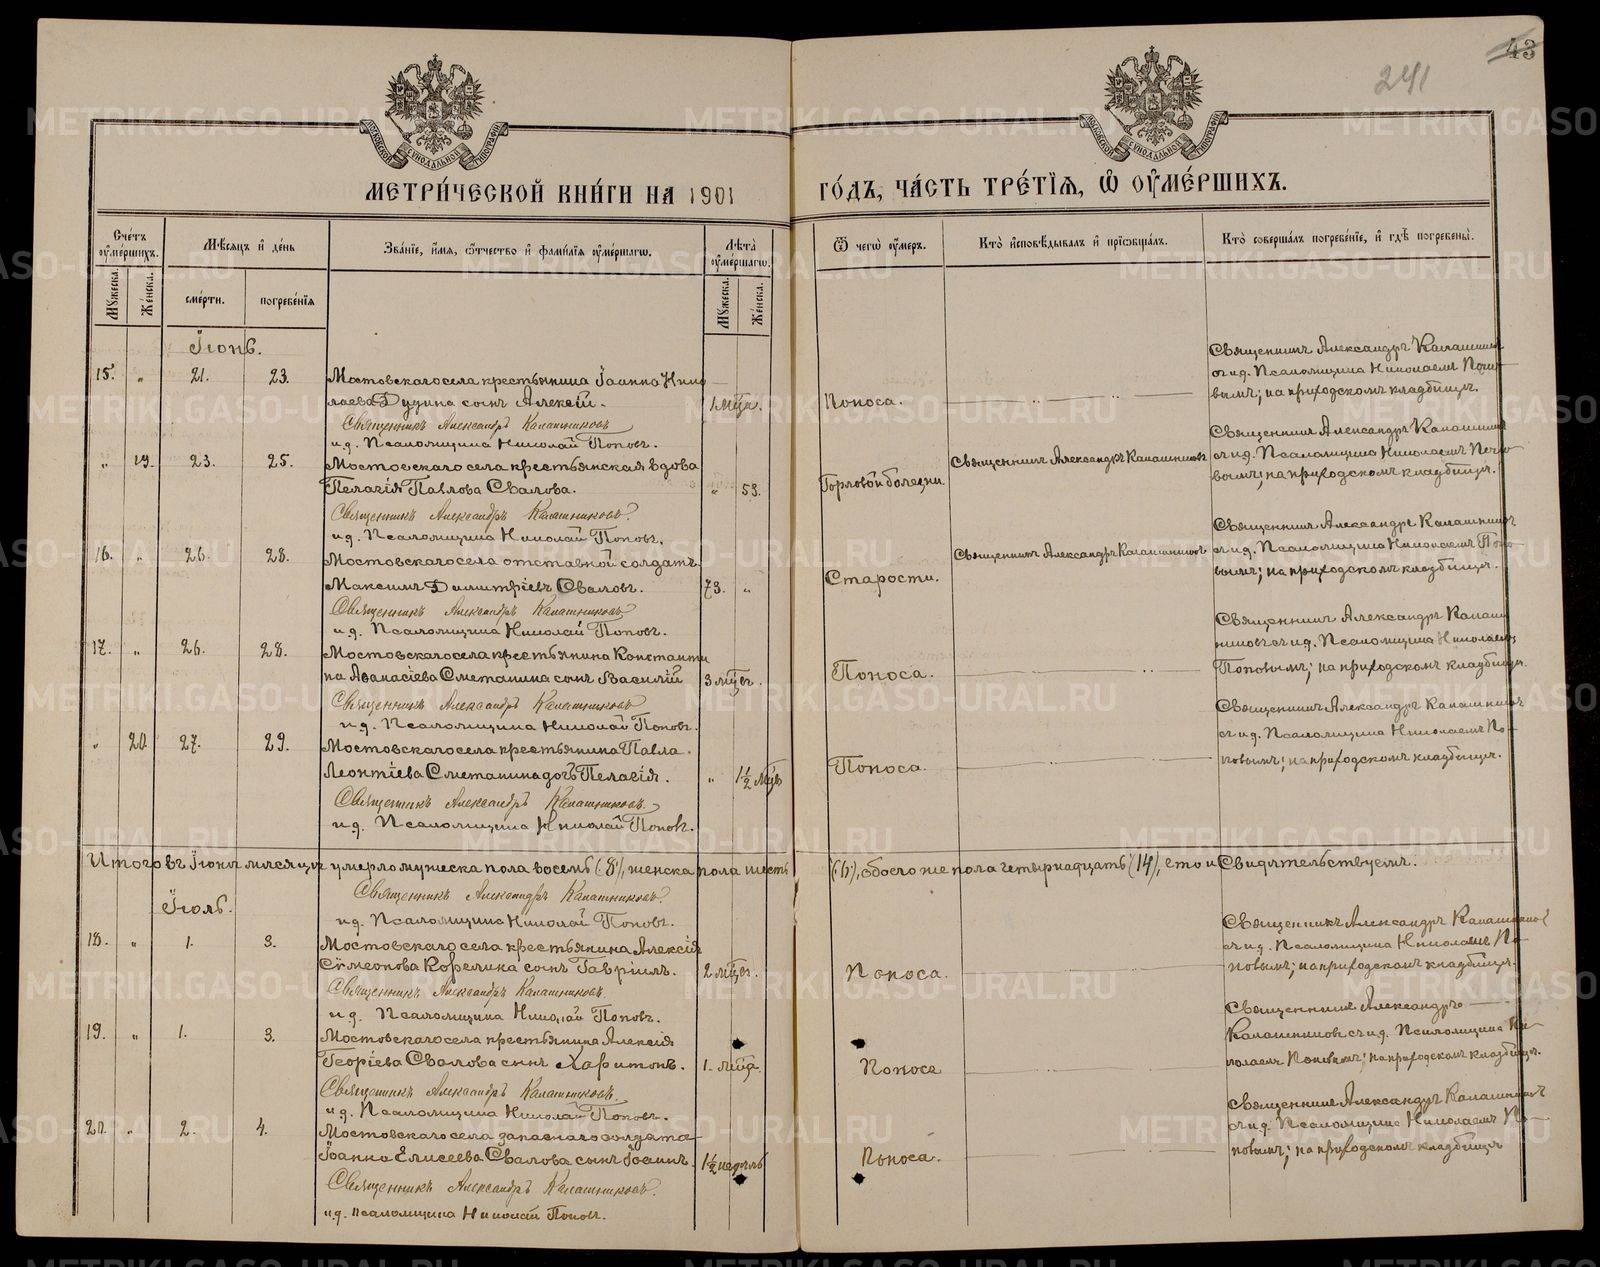 43
241
МОСКОВСКОЙ СѴНОДАЛЬНОЙ ТИПОГРАФІИ
МОСКОВСКОЙ СѴНОДАЛЬНОЙ ТИПОГРАФІИ
МЕТРИ́ЧЕСКОЙ КНИ́ГИ НА 1901
ГО́ДЪ, ЧА́СТЬ ТРЕ́ТІѦ, Ѽ ОУ҆МЕ́РШИХЪ.
Сче́тъ оу҆ме́ршихъ.
Мꙋжеска.
Же́нска.
Мѣ́сяцъ и҆ де́нь
сме́рти.
погребе́нїя
Зва́нїе, и҆́мя, ѻ҆́тчество и҆ фами́лїя оу҆ме́ршагѡ.
Лѣ́та оу҆ме́ршагѡ.
Мꙋжеска.
Же́нска.
Ѿ чегѡ̀ оу҆́меръ.
Кто̀ и҆сповѣ́дывалъ и҆ прїѡбща́лъ.
Кто̀ соверша́лъ погребе́нїе, и҆ гдѣ̀ погребены̀.
Іюнь.
15. " 21. 23. Мостовскаго села крестьянина Іоанна Нико
лаева Дудина сынъ Алексій. 1 мца. Поноса.
Священникъ Александръ Калашников
и.д. Псаломщика Николай Попов.
Священник Александръ Калашников
с и.д. Псаломщика Николаем Попо-
вымъ; на приходскомъ кладбищѣ.
" 19. 23. 25. Мостовскаго села крестьянская вдова
Пелагія Павлова Свалова. " 53. Горловой болезни.
Священникъ Александръ Калашниковъ.
и.д. Псаломщика Николай Поповъ.
Священник Александръ Калашников
Священник Александръ Калашников
с и.д. Псаломщика Николаем Попо-
вымъ; на приходскомъ кладбищѣ.
16. " 26. 28. Мостовскаго села отставной солдатъ
Максимъ Димитріевъ Свалов. 73. " Старости.
Священникъ Александръ Калашниковъ
и.д. Псаломщика Николай Поповъ.
Священник Александръ Калашников
Священник Александръ Калашников
с и.д. Псаломщика Николаем Попо-
вымъ; на приходскомъ кладбищѣ.
17. " 26. 28. Мостовскаго села крестьянина Константи
на Аѳанасіева Сметанина сынъ Василій 3 мцев. Поноса.
Священникъ Александръ Калашниковъ
и.д. Псаломщика Николай Поповъ.
Священник Александръ Калаш
никовъ с и.д. Псаломщика Николаем
Поповымъ; на приходскомъ кладбищѣ.
" 20. 27. 29. Мостовскаго села крестьянина Павла
Леонтіева Сметанина дочь Пелагія. " 1½ мцъ Поноса.
Священникъ Александръ Калашниковъ
и.д. Псаломщика Николай Поповъ.
Священник Александръ Калашников
с и.д. Псаломщика Николаемъ По-
повымъ; на приходскомъ кладбищѣ.
Итого въ Іюнѣ мѣсяцѣ умерло мужеска пола восемь (8), женска пола шесть (6), обоего же пола четырнадцать (14), сто и Свидѣтельствуемъ.
Священникъ Александръ Калашниковъ.
и.д. Псаломщика Николай Поповъ.
Іюль.
18. " 1. 3. Мостовскаго села крестьянина Алексія
Сѵмеонова Корелина сынъ Гавріилъ. 2 мцев. Поноса.
Священникъ Александръ Калашниковъ.
и.д. Псаломщика Николай Поповъ.
Священникъ Александръ Калашников
с и.д. Псаломщика Николаем По-
повымъ; на приходскомъ кладбищѣ.
19. " 1. 3. Мостовскаго села крестьянина Алексія
Георгіева Свалова сынъ Харитонъ. 1. мца. Поноса
Священникъ Александръ Калашниковъ.
и.д. Псаломщика Николай Поповъ.
Священник Александръ
Калашников с и.д. Псаломщика Ни-
колаем Поповымъ; на приходскомъ кладбищѣ.
20. " 2. 4. Мостовскаго села запаснаго солдата
Іоанна Елисеева Свалова сынъ Іоаннъ. 1½ недѣль Поноса.
Священникъ Александръ Калашниковъ.
и.д. псаломщика Николай Поповъ.
Священник Александръ Калашников
с и.д. Псаломщика Николаем По-
повымъ; на приходскомъ кладбищѣ
METRIKI.GASO-URAL.RU